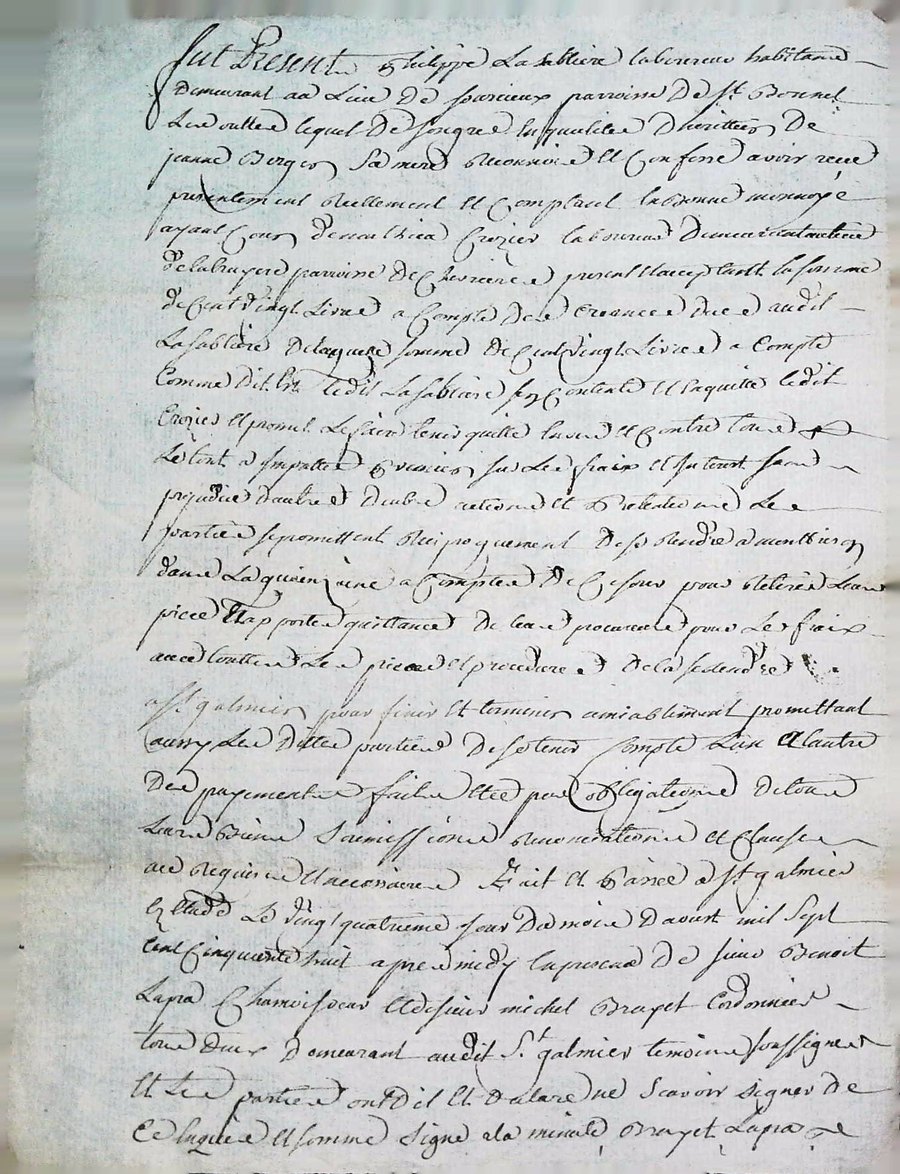 fut Present Philippe Lasabliere laboureur habitant
demeurant au Lieu De souzieux parroisse De st Bonnet
Les oulles lequel De son gre en qualite D'heritier De
jeanne Berger Sa mere Reconnoit Et Confesse avoir receu
presentement Reellement Et Comptant en bonne monnoye
ayant Cours De mathieu Crozier laboureur Demeurant au lieu
De la bruyere parroisse De Chevrieres present Et acceptant la somme
De Cent Vingt Livres a Compte Des Creances dues audit
Lasabliere De laquelle somme De Cent Vingt Livres a Compte
Comme dit est Ledit Lasabliere se Contente Et En quitte ledit
Crozier Et promet Le faire tenir quitte Envers Et Contre tous
Le tout a Imputer Premier sur Les fraix Et Sans
prejudice D'autres Dubs actions Et Pretentions Les
parties se promettent Reciproquement De se Rendre a montbrison
dans La quinzaine a Compter De Ce jour pour Retirer Leurs
pieces Et apporter quittance De leurs procureurs pour Les fraix
avec toutes Les pieces Et procedures De la
a st galmier pour finir Et terminer amiablement promettant
aussy Les Dittes parties De se tenir Compte L'un a L'autre
Des payements faits Et par obligations De tous
Leurs Biens Soumissions Renonciations Et Clauses
a ce Requises Et necessaires Fait Et Passé a St galmier
Etude Le Vingt quatrieme jour Du mois D'aoust mil Sept
Cent Cinquante huit apres midy En presence De sieur Benoit
Lapra Chamoiseur Et De sieur michel Brayet Cordonnier
tous Deux Demeurant audit St galmier temoins soussignes
Et Les parties ont Dit Et Declare ne Scavoir signer De
Ce Enquis Et somme Signe a la minute Brayet Lapra